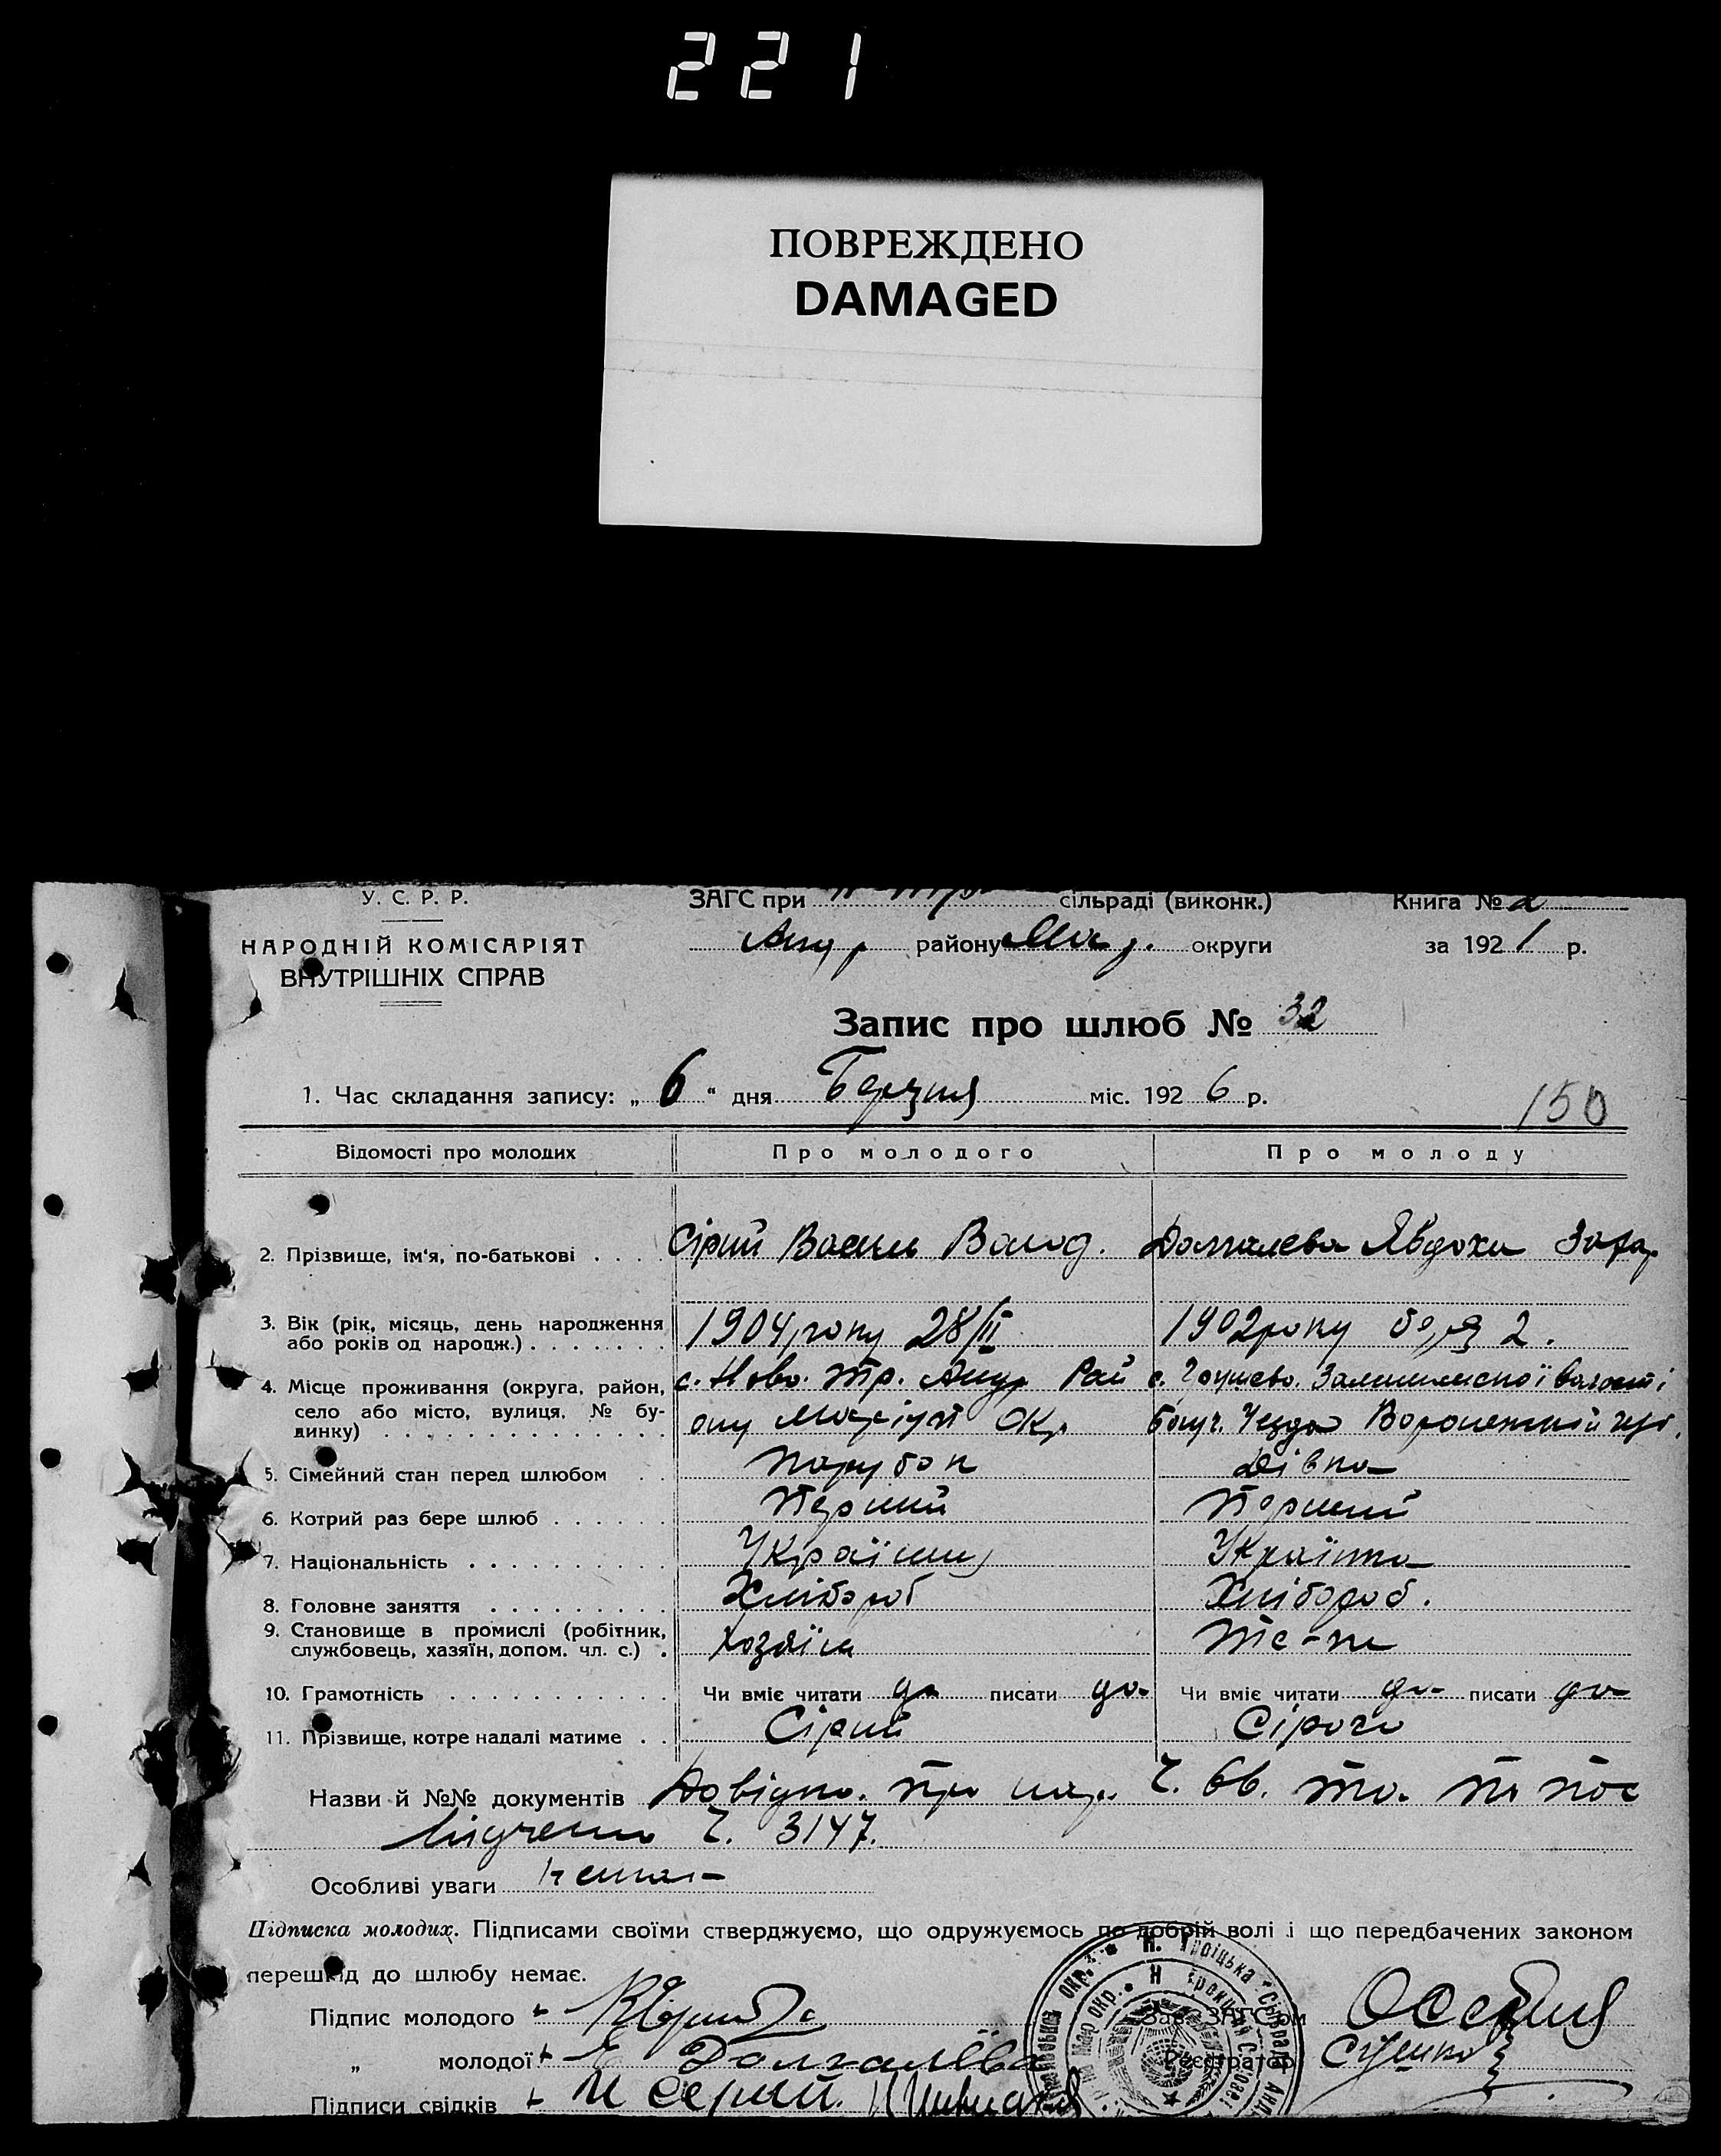 221
ПОВРЕЖДЕНО
DAMAGED
У. С. Р. Р.
ЗАГС при сільраді (виконк.) Книга № 2
НАРОДНІЙ КОМІСАРІЯТ
ВНУТРІШНІХ СПРАВ
району округи за 192 р.
Запис про шлюб № 32
1. Час складання запису: „ 6 “ дня Березня міс. 192 6 р.
150
Відомості про молодих Про молодого Про молоду
2. Прізвище, ім'я, по-батькові . . . . Сірий Василь Волод. Долгалева Явдоха Заха
3. Вік (рік, місяць, день народження 1904 року 28/II 1902 року 2.
або років од народж.) . . . . . . .
4. Місце проживання (округа, район, с. Ново. Тр. Анд Рай с.
село або місто, вулиця, № бу- ону Маріуп Окр. Воронежской губ.
динку) . . . . . . . . . . . . . .
5. Сімейний стан перед шлюбом . . Парубок Дівка
6. Котрий раз бере шлюб . . . . . . Перший Перший
7. Національність . . . . . . . . . . Українец Українка
8. Головне заняття . . . . . . . . . Хлібороб Хлібороб.
9. Становище в промислі (робітник, Хозяїн те-ж
службовець, хазяїн, допом. чл. с.) .
10. Грамотність . . . . . . . . . . . Чи вміє читати да писати да- Чи вміє читати да- писати да
11. Прізвище, котре надалі матиме . . Сірий Сірого
Назви й №№ документів Довідка. про Ч. 66. та. по пос
Ч. 3147.
Особливі уваги нема-
Підписка молодих. Підписами своїми стверджуємо, що одружуємось по добрій волі і що передбачених законом
перешкід до шлюбу немає.
Підпис молодого Зав. ЗАГС'ом
„ молодої Е Долгалёва Реєстратор
Підписи свідків И Серый.